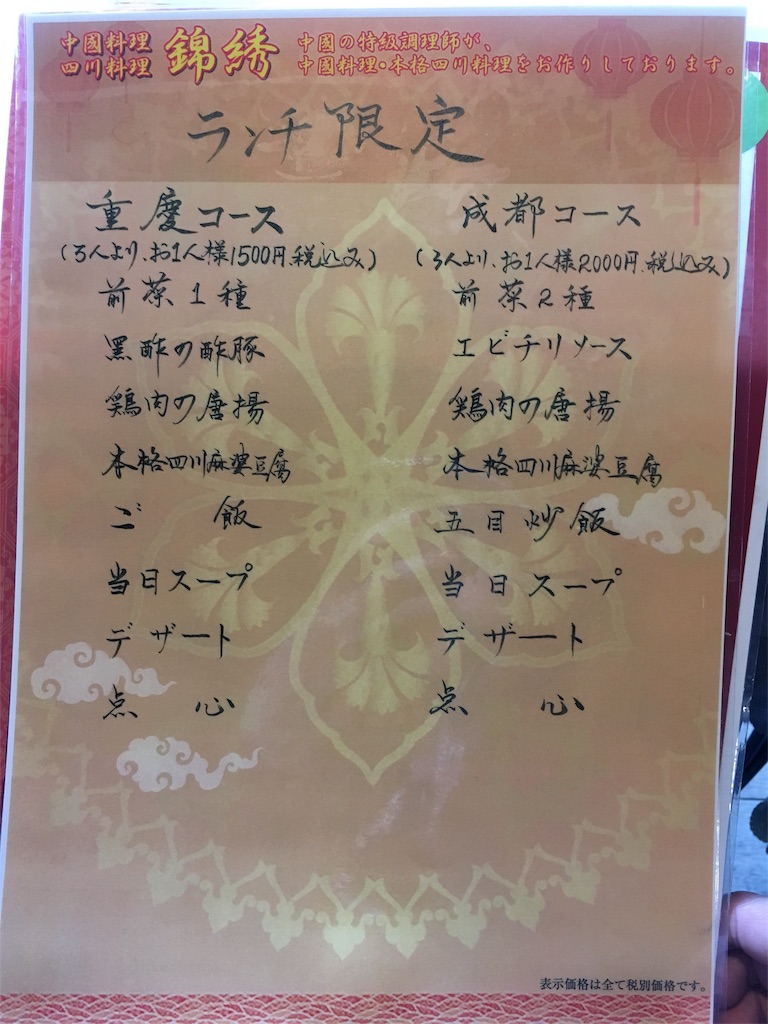 中國料理
四川料理
錦綉
中國の特級調理師が、
中國料理・本格四川料理をお作りしております。
ランチ限定
重慶コース
(3人より、お1人様1500円、税込み)
前菜1種
黒酢の酢豚
鶏肉の唐揚
本格四川麻婆豆腐
ご飯
当日スープ
デザート
点心
成都コース
(3人より、お1人様2000円、税込み)
前菜2種
エビチリソース
鶏肉の唐揚
本格四川麻婆豆腐
五目炒飯
当日スープ
デザート
点心
表示価格は全て税別価格です。